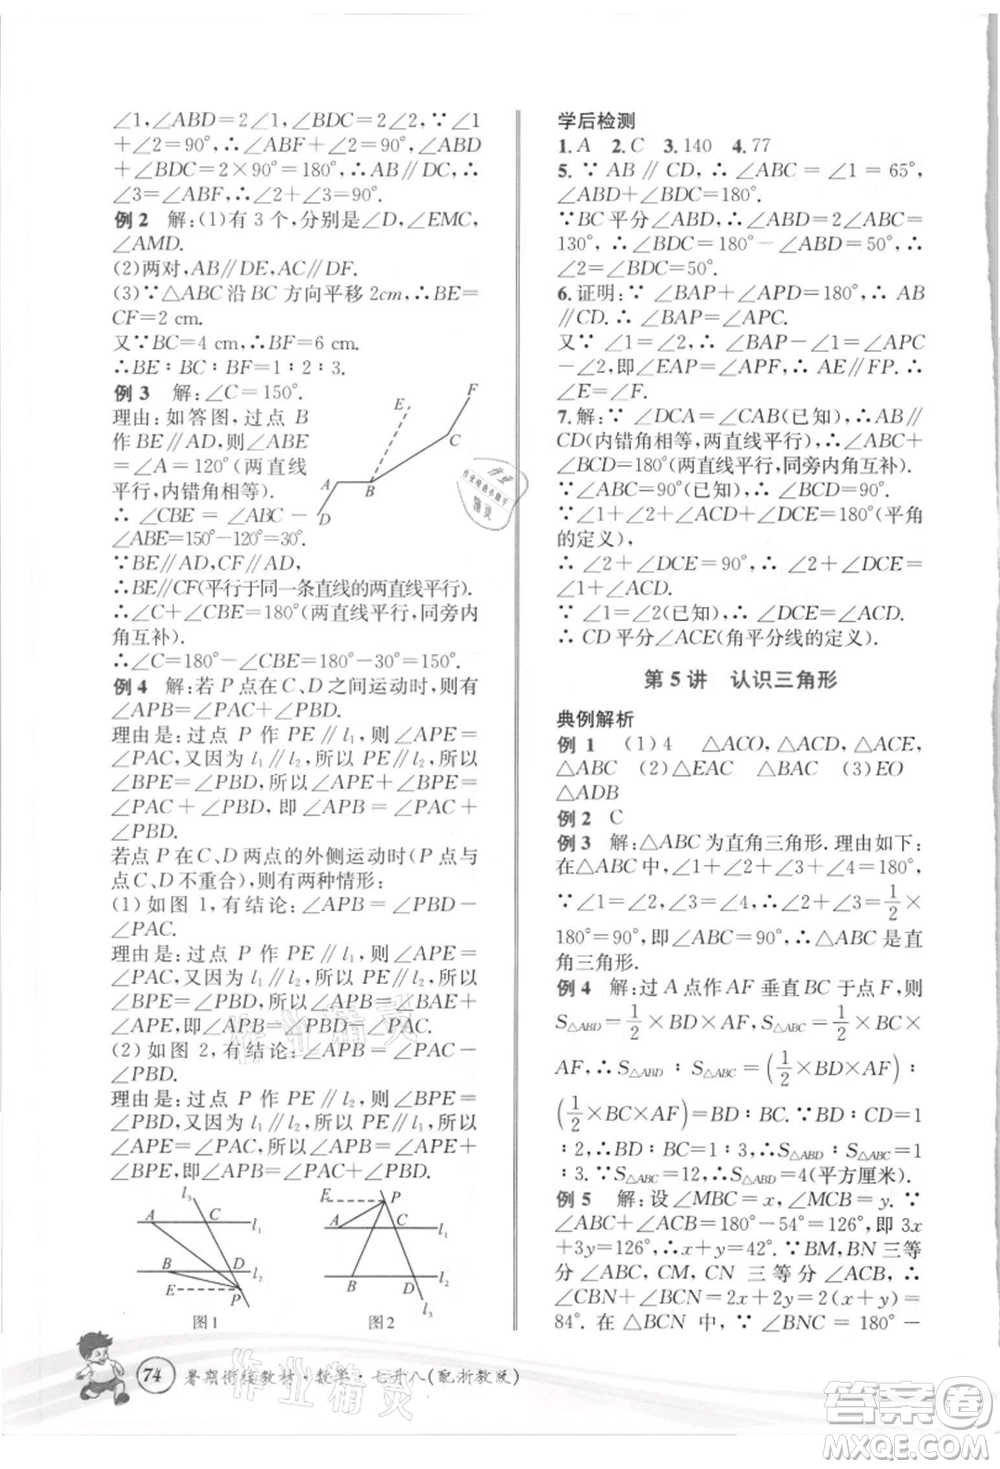 ∠1,∠ABD=2∠1,∠BDC=2∠2,∵∠1
+∠2=90°,∴∠ABF+∠2=90°,∴∠ABD+
∠BDC=2×90°=180°,∴AB∥CD.∴
∠3=∠ABF,∴∠2+∠3=90°.
例2 解:(1)有3个,分别是∠D,∠EMC,
∠AMD.
(2)两对,AB∥DE,AC∥DF.
(3)∵△ABC沿BC方向平移2cm,∴BE=
CF=2 cm.
又∵BC=4 cm,∴BF=6 cm.
∴BE∶BC∶BF=1∶2∶3.
例3 解:∠C=150°.
理由:如答图,过点B
作BE∥AD,则∠ABE
=∠A=120°(两直线
平行,内错角相等).
∴∠CBE=∠ABC-
∠ABE=150°-120°=30°.
E F C A B D
∵BE∥AD,CF∥AD,
∴BE∥CF(平行于同一条直线的两直线平行).
∴∠C+∠CBE=180°(两直线平行,同旁内
角互补).
∴∠C=180°-∠CBE=180°-30°=150°.
例4 解:若P点在C、D之间运动时,则有
∠APB=∠PAC+∠PBD.
理由是:过点P作PE∥l₁,则∠APE=
∠PAC,又因为l₁∥l₂,所以PE∥l₂,所以
∠BPE=∠PBD,所以∠APE+∠BPE=
∠PAC+∠PBD,即∠APB=∠PAC+
∠PBD.
若点P在C、D两点的外侧运动时(P点与
点C、D不重合),则有两种情形:
(1)如图1,有结论:∠APB=∠PBD-
∠PAC.
理由是:过点P作PE∥l₁,则∠APE=
∠PAC,又因为l₁∥l₂,所以PE∥l₂,所以
∠BPE=∠PBD,所以∠APB=∠BAE+
∠APE,即∠APB=∠PBD-∠PAC.
(2)如图2,有结论:∠APB=∠PAC-
∠PBD.
理由是:过点P作PE∥l₂,则∠BPE=
∠PBD,又因为l₁∥l₂,所以PE∥l₁,所以
∠APE=∠PAC,所以∠APB=∠APE+
∠BPE,即∠APB=∠PAC+∠PBD.
l₃ A C l₁ B D l₂ E P
图1
E P A C l₁ B D l₂ l₃
图2
74 暑期衔接教材·数学·七升八(配浙教版)
学后检测
1.A 2.C 3.140 4.77
5.∵AB∥CD,∴∠ABC=∠1=65°,
∠ABD+∠BDC=180°.
∵BC平分∠ABD,∴∠ABD=2∠ABC=
130°,∴∠BDC=180°-∠ABD=50°,∴
∠2=∠BDC=50°.
6.证明:∵∠BAP+∠APD=180°,∴AB
∥CD.∴∠BAP=∠APC.
又∵∠1=∠2,∴∠BAP-∠1=∠APC
-∠2,即∠EAP=∠APF,∴AE∥PF.∴
∠E=∠F.
7.解:∵∠DCA=∠CAB(已知),∴AB∥
CD(内错角相等,两直线平行),∴∠ABC+
∠BCD=180°(两直线平行,同旁内角互补).
∵∠ABC=90°(已知),∴∠BCD=90°.
∵∠1+∠2+∠ACD+∠DCE=180°(平角
的定义),∴∠2+∠DCE=90°.
∵∠2+∠ACD=∠BCD=90°,
∵∠1=∠2(已知),∴∠DCE=∠ACD.
∴CD平分∠ACE(角平分线的定义).
第5讲 认识三角形
典例解析
例1 (1)4 △ACO,△ACD,△ACE,
△ABC (2)△EAC △BAC (3)EO
△ADB
例2 C
例3 解:△ABC为直角三角形.理由如下:
在△ABC中,∠1+∠2+∠3+∠4=180°,
∵∠1=∠2,∠3=∠4,∴∠2+∠3=1/2×
180°=90°,即∠ABC=90°,∴△ABC是直
角三角形.
例4 解:过A点作AF垂直BC于点F,则
S△ABD=1/2×BD×AF,S△ABC=1/2×BC×
AF,∴S△ABD∶S△ABC=(1/2×BD×AF)∶
(1/2×BC×AF)=BD∶BC.∵BD∶CD=1
∶2,∴BD∶BC=1∶3,∴S△ABD∶S△ABC=1
∶3.∵S△ABC=12,∴S△ABD=4(平方厘米).
例5 解:设∠MBC=x,∠MCB=y.∵
∠ABC+∠ACB=180°-54°=126°,即3x
+3y=126°,∴x+y=42°.∵BM,BN三等
分∠ABC,CM,CN三等分∠ACB,∴
∠CBN+∠BCN=2x+2y=2(x+y)=
84°.∴∠BNC=180°-84°=96°.
作业精灵
作业精灵
答案圈
MXQE.COM